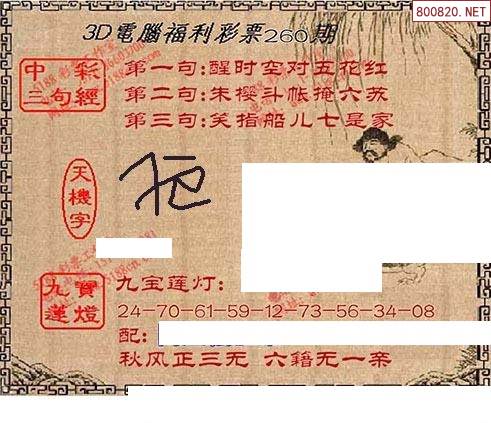 800820.NET
3D電腦福利彩票260期
中彩
三句經
第一句:醒时空对五花红
第二句:朱樱斗帐掩六苏
第三句:笑指船儿七是家
天機字
九寶
蓮燈
九宝莲灯:
24-70-61-59-12-73-56-34-08
配:
秋风正三无 六籍无一亲